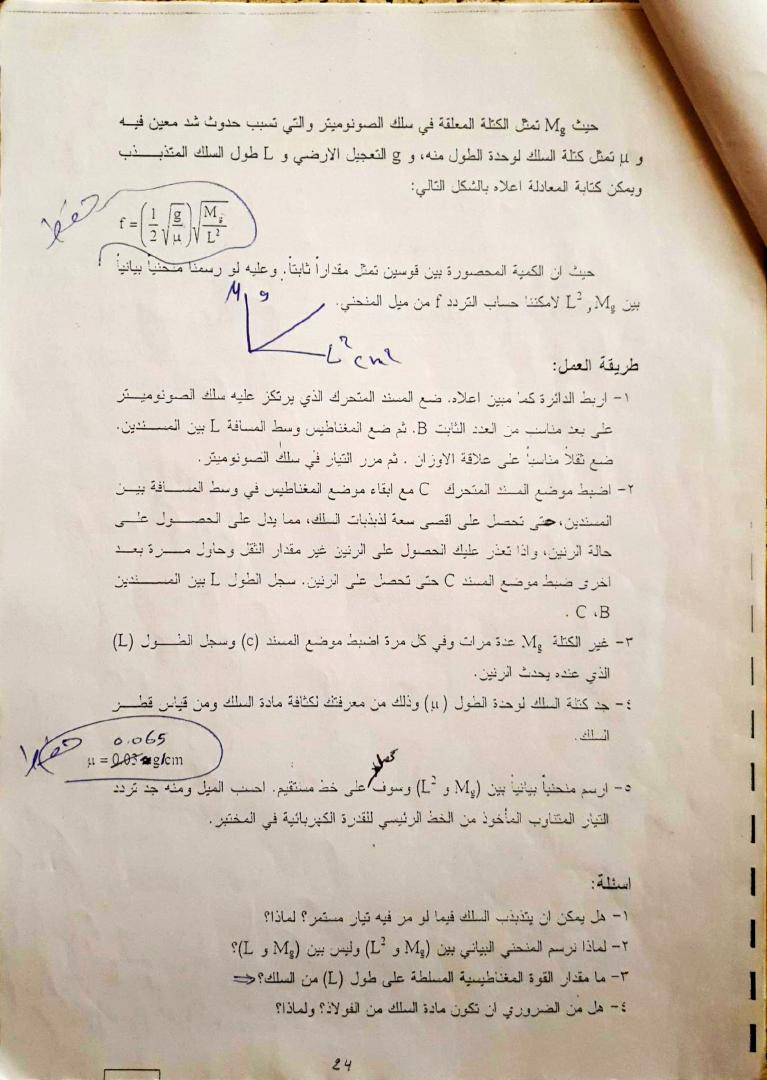 حيث Mg تمثل الكتلة المعلقة في سلك الصونوميتر والتي تسبب حدوث شد معين فيه
و μ تمثل كتلة السلك لوحدة الطول منه، و g التعجيل الارضي و L طول السلك المتذبذب
ويمكن كتابة المعادلة اعلاه بالشكل التالي:
حفظ
f = (1/2 √(g/μ)) √(Mg/L²)
حيث ان الكمية المحصورة بين قوسين تمثل مقداراً ثابتاً. وعليه لو رسمنا منحنياً بيانياً
بين Mg , L² لامكننا حساب التردد f من ميل المنحني.
Mg
L² cm²
طريقة العمل:
١- اربط الدائرة كما مبين اعلاه. ضع المسند المتحرك الذي يرتكز عليه سلك الصونوميتر
على بعد مناسب من العدد الثابت B. ثم ضع المغناطيس وسط المسافة L بين المسندين.
ضع ثقلاً مناسباً على علاقة الاوزان . ثم مرر التيار في سلك الصونوميتر.
٢- اضبط موضع المسند المتحرك C مع ابقاء موضع المغناطيس في وسط المسافة بين
المسندين، حتى تحصل على اقصى سعة لذبذبات السلك، مما يدل على الحصول على
حالة الرنين، واذا تعذر عليك الحصول على الرنين غير مقدار الثقل وحاول مرة بعد
اخرى ضبط موضع المسند C حتى تحصل على الرنين. سجل الطول L بين المسندين
C ،B .
٣- غير الكتلة Mg عدة مرات وفي كل مرة اضبط موضع المسند (c) وسجل الطول (L)
الذي عنده يحدث الرنين.
٤- جد كتلة السلك لوحدة الطول (μ) وذلك من معرفتك لكثافة مادة السلك ومن قياس قطر
السلك.
حفظ
0.065
μ = 0.03 g/cm
٥- ارسم منحنياً بيانياً بين (Mg و L²) وسوف نحصل على خط مستقيم. احسب الميل ومنه جد تردد
التيار المتناوب المأخوذ من الخط الرئيسي للقدرة الكهربائية في المختبر.
اسئلة:
١- هل يمكن ان يتذبذب السلك فيما لو مر فيه تيار مستمر؟ لماذا؟
٢- لماذا نرسم المنحني البياني بين (Mg و L²) وليس بين (Mg و L)؟
٣- ما مقدار القوة المغناطيسية المسلطة على طول (L) من السلك؟
٤- هل من الضروري ان تكون مادة السلك من الفولاذ؟ ولماذا؟
24